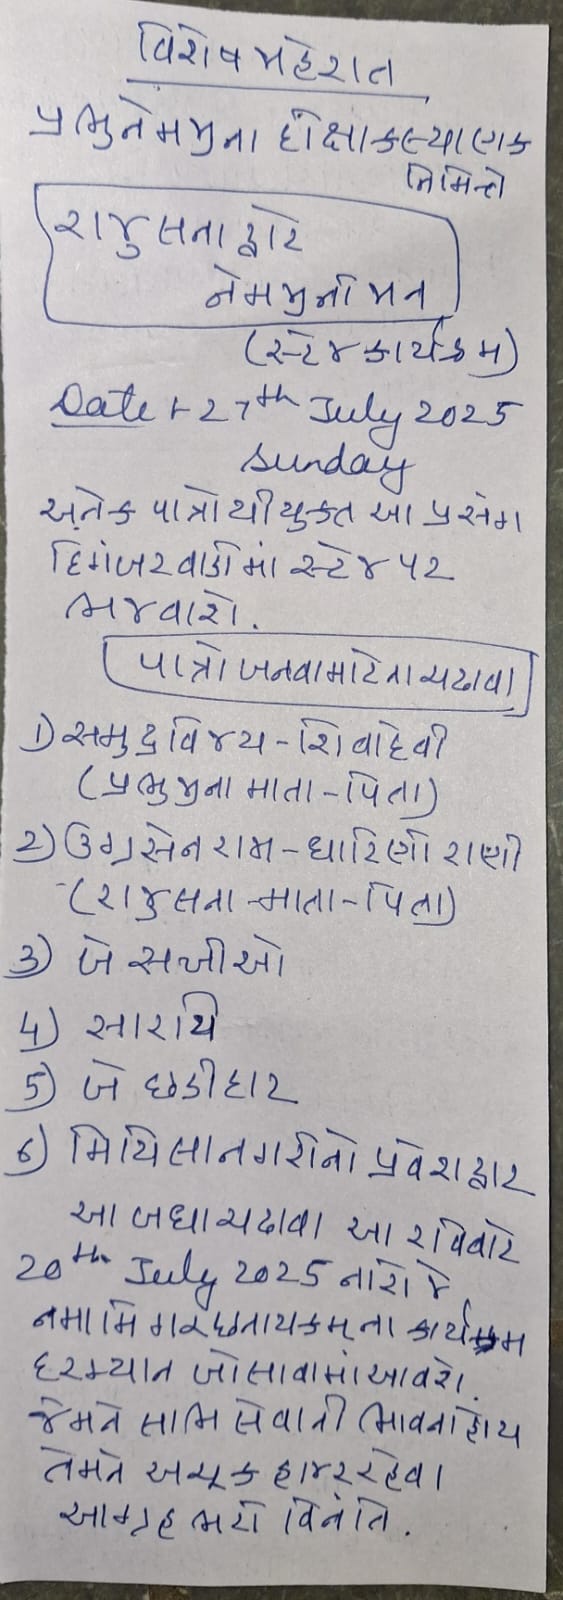 વિશેષ મહેરાત
પ્રભુનેમજીના દીક્ષાકલ્યાણક
નિમિત્તે
રાજુલના દ્વારે
નેમજીની જાન
(સ્ટેજ કાર્યક્રમ)
Date :- 27th July 2025
Sunday
અનેક પાત્રોથીયુક્ત આ પ્રસંગ
દિગંબરવાડીમાં સ્ટેજ પર
ભજવાશે.
પાત્રો બનવા માટેના ચઢાવા
1) સમુદ્રવિજય - શિવાદેવી
(પ્રભુજીના માતા - પિતા)
2) ઉગ્રસેન રાજા - ધારિણી રાણી
(રાજુલના - માતા - પિતા)
3) બે સખીઓ
4) સારથિ
5) બે છડીદાર
6) મિથિલાનગરીનો પ્રવેશદ્વાર
આ બધા ચઢાવા આ રવિવારે
20th July 2025 ના રોજે
નમામિ ગચ્છનાયકમ્ ના કાર્યક્રમ
દરમ્યાન બોલાવામાં આવશે.
જેમને લાભ લેવાની ભાવના હોય
તેમને અચૂક હાજર રહેવા
આગ્રહભરી વિનંતિ.